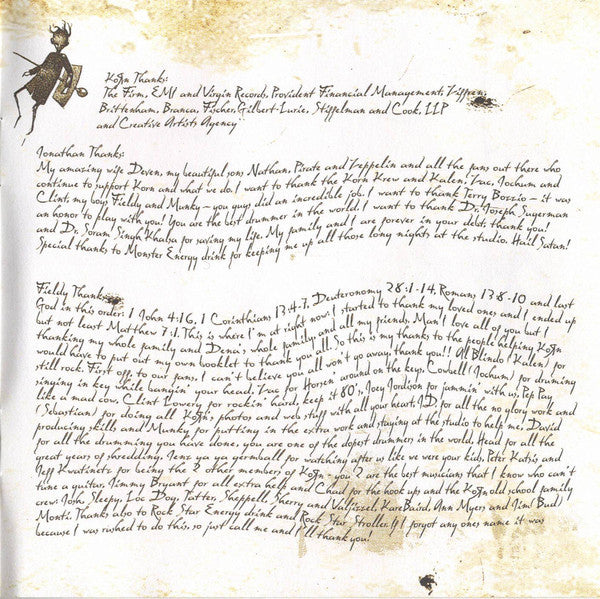 KoЯn Thanks:
The Firm, EMI and Virgin Records, Provident Financial Management, Ziffren,
Brittenham, Branca, Fischer, Gilbert-Lurie, Stiffelman and Cook, LLP
and Creative Artists Agency
Jonathan Thanks:
My amazing wife Deven, my beautiful sons Nathan, Pirate and Zeppelin and all the fans out there who
continue to support Korn and what we do. I want to thank the Korn Krew and Kalen, Zac, Jochum and
Clint, my boys Fieldy and Munky - you guys did an incredible job. I want to thank Terry Bozzio - it was
an honor to play with you! You are the best drummer in the world. I want to thank Dr. Joseph Sugerman
and Dr. Soram Singh Khalsa for saving my life. My family and I are forever in your debt, thank you!
Special thanks to Monster Energy drink for keeping me up all those long nights at the studio. Hail Satan!
Fieldy Thanks:
God in this order: 1 John 4:16, 1 Corinthians 13:4-7, Deuteronomy 28:1-14, Romans 13:8-10 and last
but not least Matthew 7:1. This is where I'm at right now! I started to thank my loved ones and I ended up
thanking my whole family and Dena's whole family and all my friends. Man! I love all of you but I
would have to put out my own booklet to thank you all. So this is my thanks to the people helping KoЯn
still rock. First off, to our fans, I can't believe you all won't go away, thank you!! Al Blindo (Kalen) for
singing in key while bangin' your head, Zac for Horsen' around on the keys, Cowbell (Jochum) for druming
like a mad cow, Clint Lowery for rockin' hard, keep it 80's, Joey Jordison for jammin' with us, Pep Pay
(Sebastian) for doing all KoЯn photos and web stuff with all your heart, J.D. for all the no glory work and
producing skills and Munky for putting in the extra work and staying at the studio to help me, David
for all the drumming you have done, you are one of the dopest drummers in the world, Head for all the
great years of shredding, Jens ya ya germball for watching after us like we were your kids, Peter Katsis and
Jeff Kwatinetz for being the 2 other members of KoЯn - you 2 are the best musicians that I know who can't
tune a guitar, Jimmy Bryant for all extra help and Chad for the hook ups and the KoЯn old school family
crew: Josh Sleepy, Loc Dog, Tatter, Sheppell, Sherry and Valfizzel, KareBaird, Ann Myers and Jim (Bud)
Monti. Thanks also to Rock Star Energy drink and Rock Star Stroller. If I forgot any ones name it was
because I was rushed to do this, so just call me and I'll thank you!